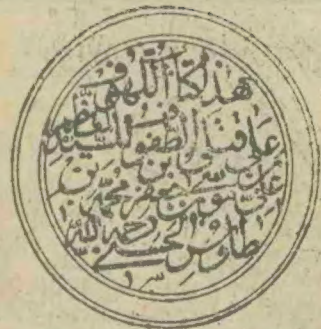 هذا كتاب اللهوف
على قتلى الطفوف للسيد
علي بن موسى بن جعفر بن محمد بن
طاوس الحسني رحمه الله